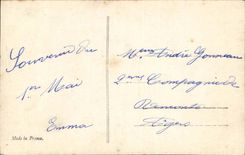 Souvenir du
1er Mai
Emma
Made in France.
Mme André Gonneau
2ème Compagnie de
Remonte